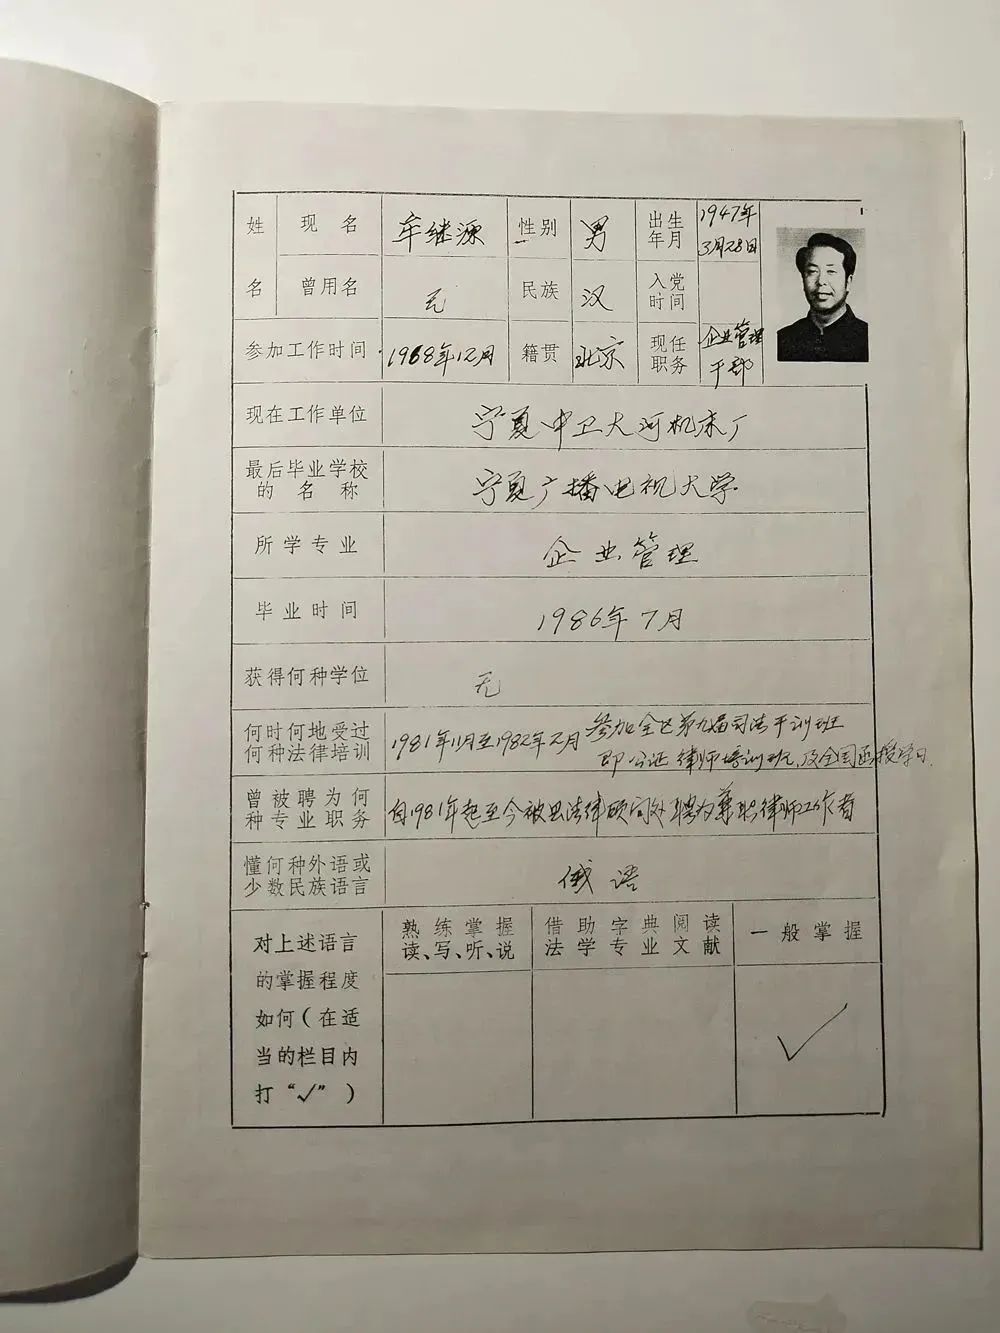 姓 现名 牟继源 性别 男 出生年月 1947年3月28日
名 曾用名 无 民族 汉 入党时间
参加工作时间 1968年12月 籍贯 北京 现任职务 企业管理干部
现在工作单位 宁夏中卫大河机床厂
最后毕业学校的名称 宁夏广播电视大学
所学专业 企业管理
毕业时间 1986年7月
获得何种学位 无
何时何地受过何种法律培训 1981年11月至1982年2月参加全区第九届司法干训班
即公证律师培训班,及全国函授学习.
曾被聘为何种专业职务 自1981年起至今被县法律顾问处聘为兼职律师工作者
懂何种外语或少数民族语言 俄语
对上述语言的掌握程度如何(在适当的栏目内打“√”)
熟练掌握读、写、听、说
借助字典阅读法学专业文献
一般掌握
√